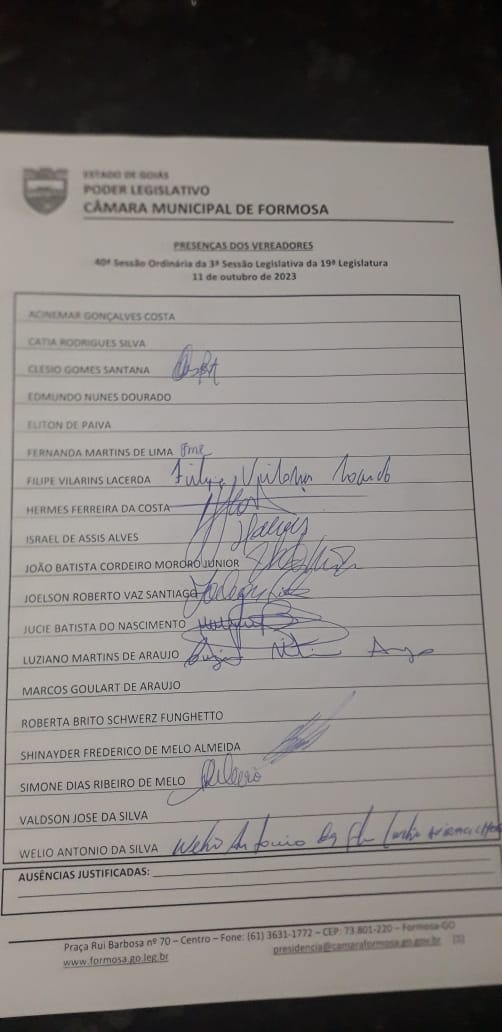 ESTADO DE GOIÁS
PODER LEGISLATIVO
CÂMARA MUNICIPAL DE FORMOSA
PRESENÇAS DOS VEREADORES
40ª Sessão Ordinária da 3ª Sessão Legislativa da 19ª Legislatura
11 de outubro de 2023
ACINEMAR GONÇALVES COSTA
CATIA RODRIGUES SILVA
CLESIO GOMES SANTANA
EDMUNDO NUNES DOURADO
ELITON DE PAIVA
FERNANDA MARTINS DE LIMA
FILIPE VILARINS LACERDA Filipe Vilarins Lacerda
HERMES FERREIRA DA COSTA
ISRAEL DE ASSIS ALVES
JOÃO BATISTA CORDEIRO MORORÓ JÚNIOR
JOELSON ROBERTO VAZ SANTIAGO
JUCIE BATISTA DO NASCIMENTO
LUZIANO MARTINS DE ARAUJO
MARCOS GOULART DE ARAUJO
ROBERTA BRITO SCHWERZ FUNGHETTO
SHINAYDER FREDERICO DE MELO ALMEIDA
SIMONE DIAS RIBEIRO DE MELO Ribeiro
VALDSON JOSE DA SILVA
WELIO ANTONIO DA SILVA Welio Antonio Da
AUSÊNCIAS JUSTIFICADAS:
Praça Rui Barbosa nº 70 – Centro – Fone: (61) 3631-1772 – CEP: 73.801-220 – Formosa-GO
www.formosa.go.leg.br presidencia@camaraformosa.go.gov.br [1]